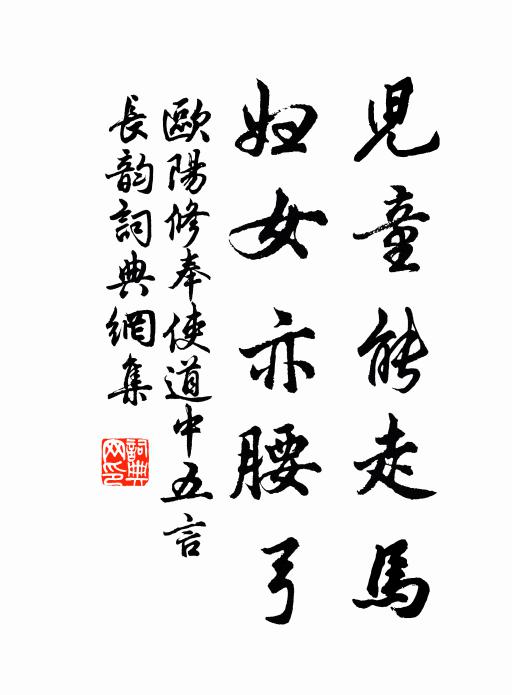 兒童能走馬
婦女亦腰弓
歐陽修奉使道中五言
長韵詞典網集
詞典
网印